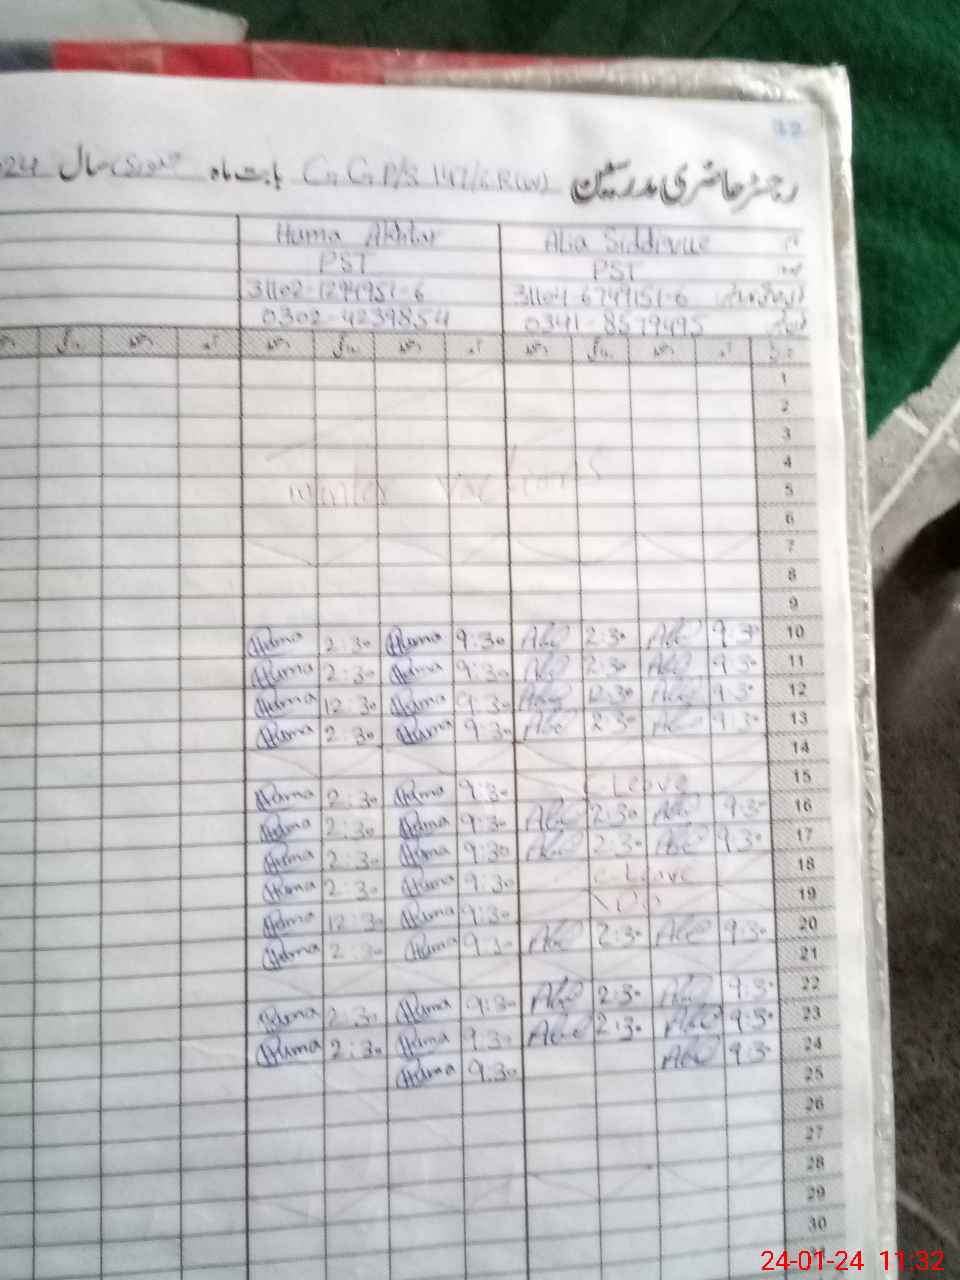 32
رجسٹر حاضری مدرسین G G P/S 147/6R(W) بابت ماہ جنوری سال 024
Huma Akhtar Alia SiddiVue
PST PST
31102-1294951-6 31104-6749151-6
0302-4239854 0341-8579495
1
2
3
4
winter vactions 5
6
7
8
9
Huma 2:30 Huma 9:30 2:30 9:30 10
Huma 2:30 Huma 9:30 2:30 9:30 11
Huma 12:30 Huma 9:30 12:30 9:30 12
Huma 2:30 Huma 9:30 2:30 9:30 13
14
Huma 2:30 Huma 9:30 C Leave 15
Huma 2:30 Huma 9:30 2:30 9:30 16
Huma 2:30 Huma 9:30 2:30 9:30 17
Huma 2:30 Huma 9:30 C-Leave 18
Huma 12:30 Huma 9:30 19
Huma 2:30 Huma 9:30 2:30 9:30 20
21
Huma 2:30 Huma 9:30 2:30 9:30 22
Huma 2:30 Huma 9:30 2:30 9:30 23
Huma 9:30 9:30 24
25
26
27
28
29
30
31
24-01-24 11:32